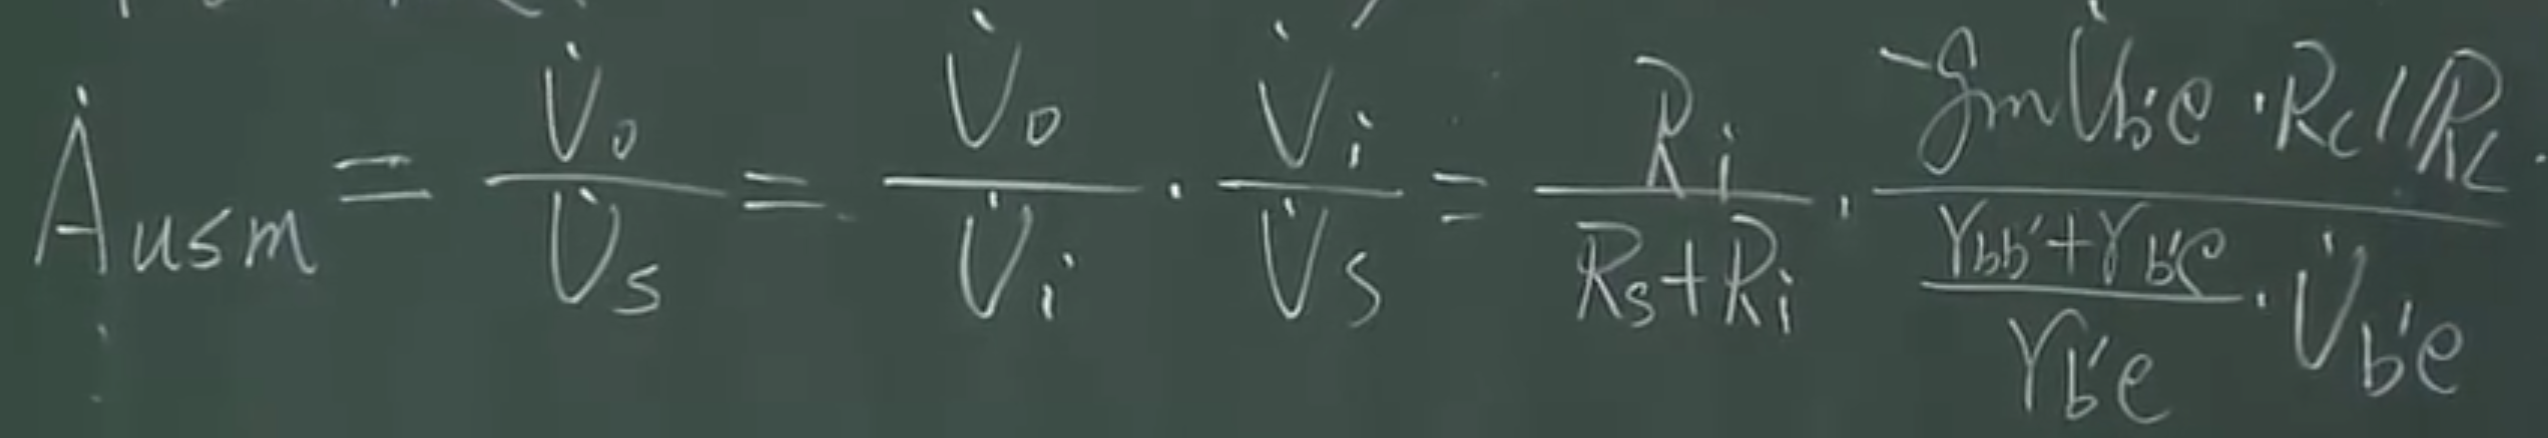 $\dot{A}_{usm} = \frac{\dot{U}_o}{\dot{U}_s} = \frac{\dot{U}_o}{\dot{U}_i} \cdot \frac{\dot{U}_i}{\dot{U}_s} = \frac{R_i}{R_s + R_i} \cdot \frac{-g_m \dot{U}_{b'e} \cdot R_c // R_L}{\frac{r_{bb'} + r_{b'e}}{r_{b'e}} \cdot \dot{U}_{b'e}}$